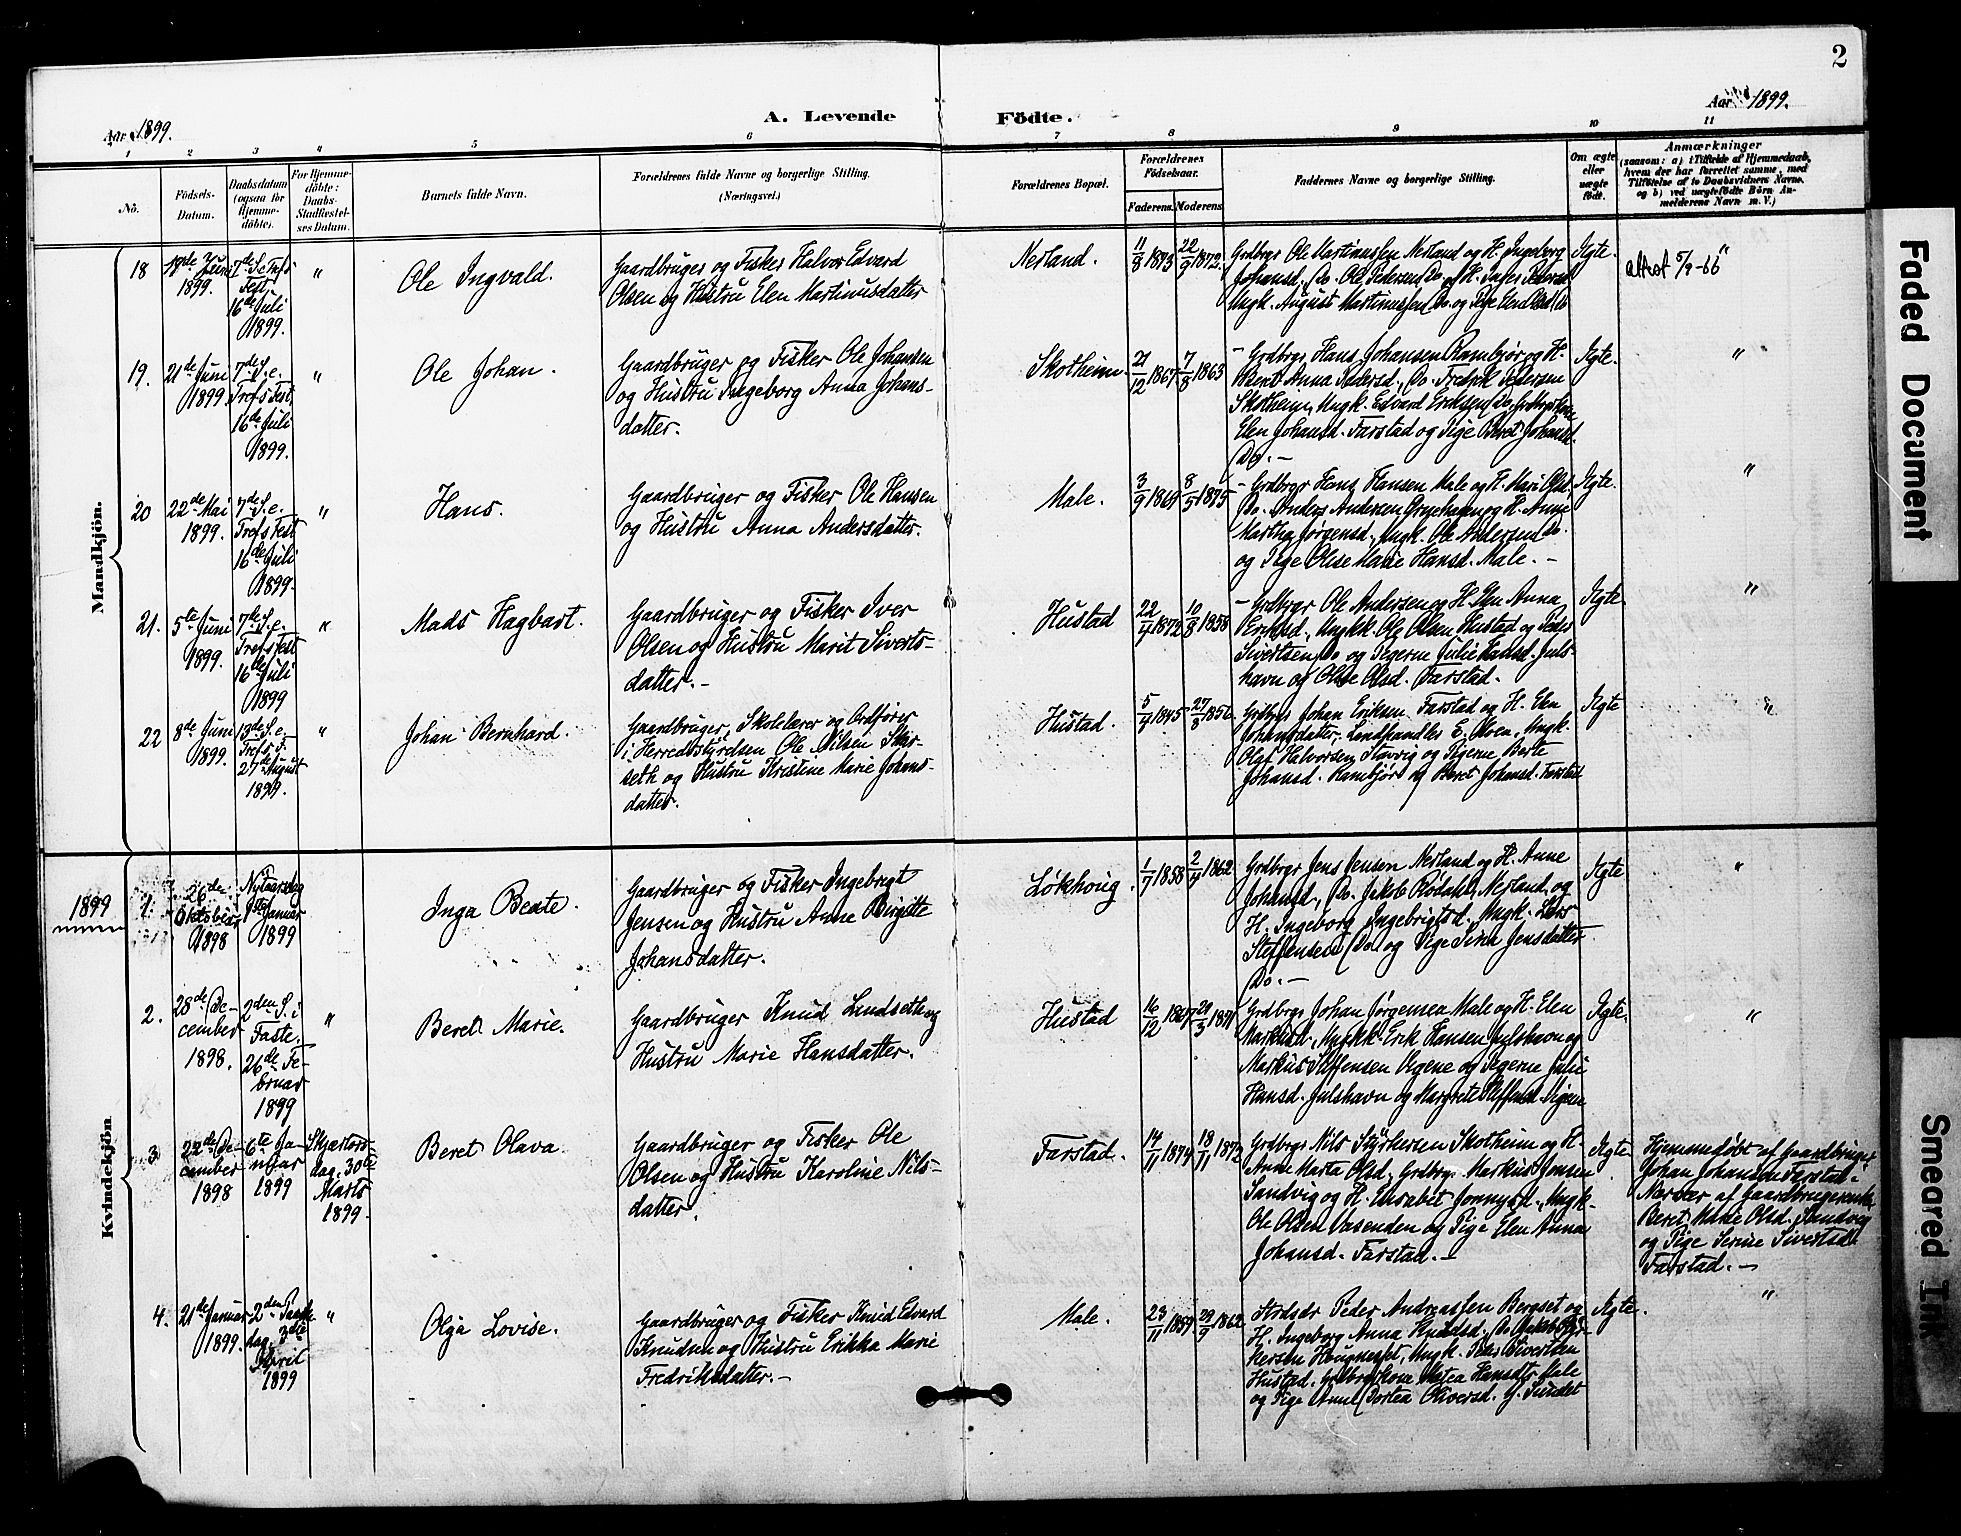 2
Aar 1899.
A. Levende Födte.
Aar 1899.
1 2 3 4 5 6 7 8 9 10 11
Nô.
Födsels-
Datum.
Daabsdatum
(ogsaa för
Hjemme-
döbte).
For Hjemme-
döbte:
Daabs-
Stadfæstel-
ses Datum.
Barnets fulde Navn.
Forældrenes fulde Navne og borgerlige Stilling.
(Næringsvei.)
Forældrenes Bopæl.
Forældrenes
Födselsaar.
Faderens.
Moderens.
Faddernes Navne og borgerlige Stilling.
Om ægte
eller
uægte
födt.
Anmærkninger
(saasom: a) i Tilfælde af Hjemmedaab,
hvem der har forrettet samme, med
Tilföielse af to Daabsvidners Navne,
og b) ved uægtefödte Börn An-
melderens Navn m. V.)
Mandkjön.
18
Juni
1899.
7de S. e. Tref.s
Fest
16de Juli
1899.
"
Ole Ingvald.
Gaardbruger og Fisker Halvor Edvard
Olsen og Hustru Elen Martinusdatter
Nerland.
11/8 1873
22/9 1872.
Grdbrgr Ole Martinussen Nerland og H. Ingeborg
Johansd., Do. Ole Pedersen Do og H.
Ungk. August Martinussen Do. og Pige
Ægte.
attest 5/9-66 "
19.
21de Juni
1899.
7de S. e.
Tref.s Fest
16de Juli
1899.
"
Ole Johan.
Gaardbruger og Fisker Ole Johansen
og Hustru Ingeborg Anna Johans-
datter.
Skotheim
21/12 1867
7/8 1863
- Grdbrgr Hans Johansen Rambjør og H.
Beret Anna Pedersd., Do. Fredrik Pedersen
Skotheim, Ungk. Edvard Eriksen Do, Grdbrgrkone
Elen Johansd. Farstad og Pige Beret Johansd.
Do. -
Ægte.
"
20
22de Mai
1899.
7de S. e.
Tref.s Fest
16de Juli
1899.
"
Hans.
Gaardbruger og Fisker Ole Hansen
og Hustru Anna Andersdatter.
Male.
3/9 1869
8/5 1875
- Grdbrgr Hans Hansen Male og H. Mari Olsd.,
Do. Anders Andersen og H. Anne
Martha Jørgensd., Ungk. Ole Andersen Do.
og Pige Olise Marie Hansd. Male. -
Ægte.
"
21.
5te Juni
1899.
7de S. e.
Tref.s Fest
16de Juli
1899
"
Mads Hagbart.
Gaardbruger og Fisker Iver
Olsen og Hustru Marit Siverts-
datter. -
Hustad
22/4 1872
10/8 1858
- Grdbrgr Ole Andersen og H. Elen Anna
Eriksd., Ungkk. Ole Olsen Hustad og Peder
Sivertsen Do og Pigerne Julie Hansd. Juls-
havn og Olise Olsd. Farstad.
Ægte.
"
22
8de Juni
1899.
13de S. e.
Tref.s F.
27de August
1899.
"
Johan Bernhard.
Gaardbruger, Skolelærer og Ordfører
i Herredsstyrelsen Ole Nilsen Skar-
seth og Hustru Kristine Marie Johans-
datter.
Hustad.
5/4 1845
27/8 1856
Grdbrgr Johan Eriksen Farstad og H. Elen
Johansdatter, Landhandler E. Moen, Ungk.
Olaf Halvorsen Stavig og Pigerne Berte
Johansd. Rambjørs og Beret Johansd. Farstad
Ægte
"
Kvindekjön
1899
1.
26de
Oktober
1898
Nytaarsdag
1ste Januar
1899
Inga Beate.
Gaardbruger og Fisker Ingebrigt
Jensen og Hustru Anne Birgitte
Johansdatter.
Løkhoug.
1/7 1858
2/4 1862
Grdbrgr Jens Jensen Nerland og H. Anne
Johansd., Do. Jakob Rødahl, Nerland, og
H. Ingeborg Ingebrigtsd., Ungk. Lars
Steffensen Do. og Pige Sina Jensdatter
Do. -
Ægte
"
2.
28de De-
cember
1898.
2den S. i
Faste,
26de Fe-
bruar
1899
"
Beret Marie.
Gaardbruger Knud Lindseth og
Hustru Marie Hansdatter.
Hustad
16/12
Grdbrgr Johan Jørgensen Male og H. Elen
Markusd., Ungkk. Erik Hansen Julshavn og
Markus Steffensen Vegene og Pigerne Julie
Hansd. Julshavn og Margrete Steffensd. Vigen
Ægte.
"
3
22de De-
cember
1898
6te Ja-
nuar
1899
Skjærtors-
dag, 30te
Marts
1899.
Beret Olava.
Gaardbruger og Fisker Ole
Olsen og Hustru Karoline Nils-
datter.
Farstad.
14/11 1874
18/11 1872
Grdbrgr Nils Styrkersen Skotheim og H.
Anne Marta Olsd., Grdbrg. Markus Jensen
Sandvig og H. Elisabet, Ungk.
Ole Olsen Vasenden og Pige Elen Anna
Johansd. Farstad. -
Ægte
Hjemmedøbt af Gaardbruger
Johan Johansen Farstad.
Nærvær af Gaardbrugerenke
Beret Marie Olsd. Sandvig
og Pige Serine Sivertsd.
Farstad. -
4.
21de Januar
1899.
2den Paaske
dag, 3die
April
1899
"
Olga Lovise.
Gaardbruger og Fisker Knud Edvard
Knudsen og Hustru Erikka Marie
Fredriksdatter. -
Male.
23/11
29/9 1862
Peder Andreassen Bergset og
H. Ingeborg Anna Knudsd., Do Jakob Styr-
kersen Hougneset, Ungk. Peder Sivertsen
Hustad, Grdbrgrkone Hansdtr Male
og Pige Anne Dortea Oliversd. Y. Sundet
Ægte.
"
Faded Document
Smeared Ink